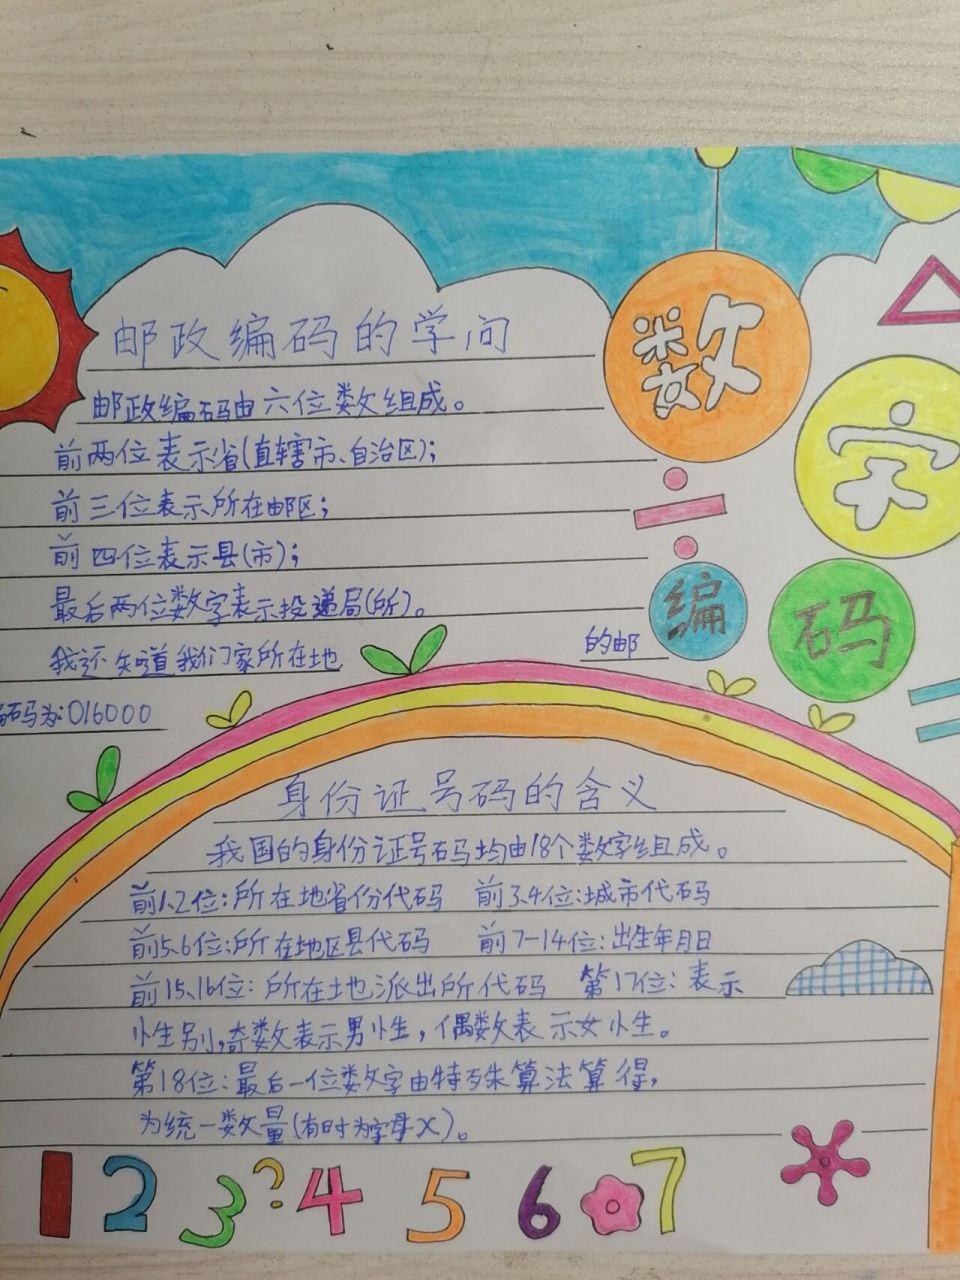 数
字
编
码
邮政编码的学问
邮政编码由六位数组成。
前两位表示省(直辖市、自治区);
前三位表示所在邮区;
前四位表示县(市);
最后两位数字表示投递局(所)。
我还知道我们家所在地 的邮
编码为:016000
身份证号码的含义
我国的身份证号码均由18个数字组成。
前1、2位:所在地省份代码 前3、4位:城市代码
前5、6位:所在地区县代码 前7-14位:出生年月日
前15、16位:所在地派出所代码 第17位:表示
性别,奇数表示男性,偶数表示女性。
第18位:最后一位数字由特殊算法算得,
为统一数量(有时为字母X)。
1 2 3 ? 4 5 6 7